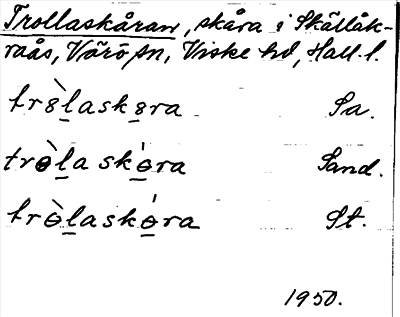 Trollaskåran, skåra i Skällåk-
raås, Värö sn, Viske hd, Hall. l.
tr8̀l̲ask8̲ra Sa.
trɵ̀l̲a skɵ̲́ra Sand.
trɵ̀l̲askɵ̲́ra St.
1950.